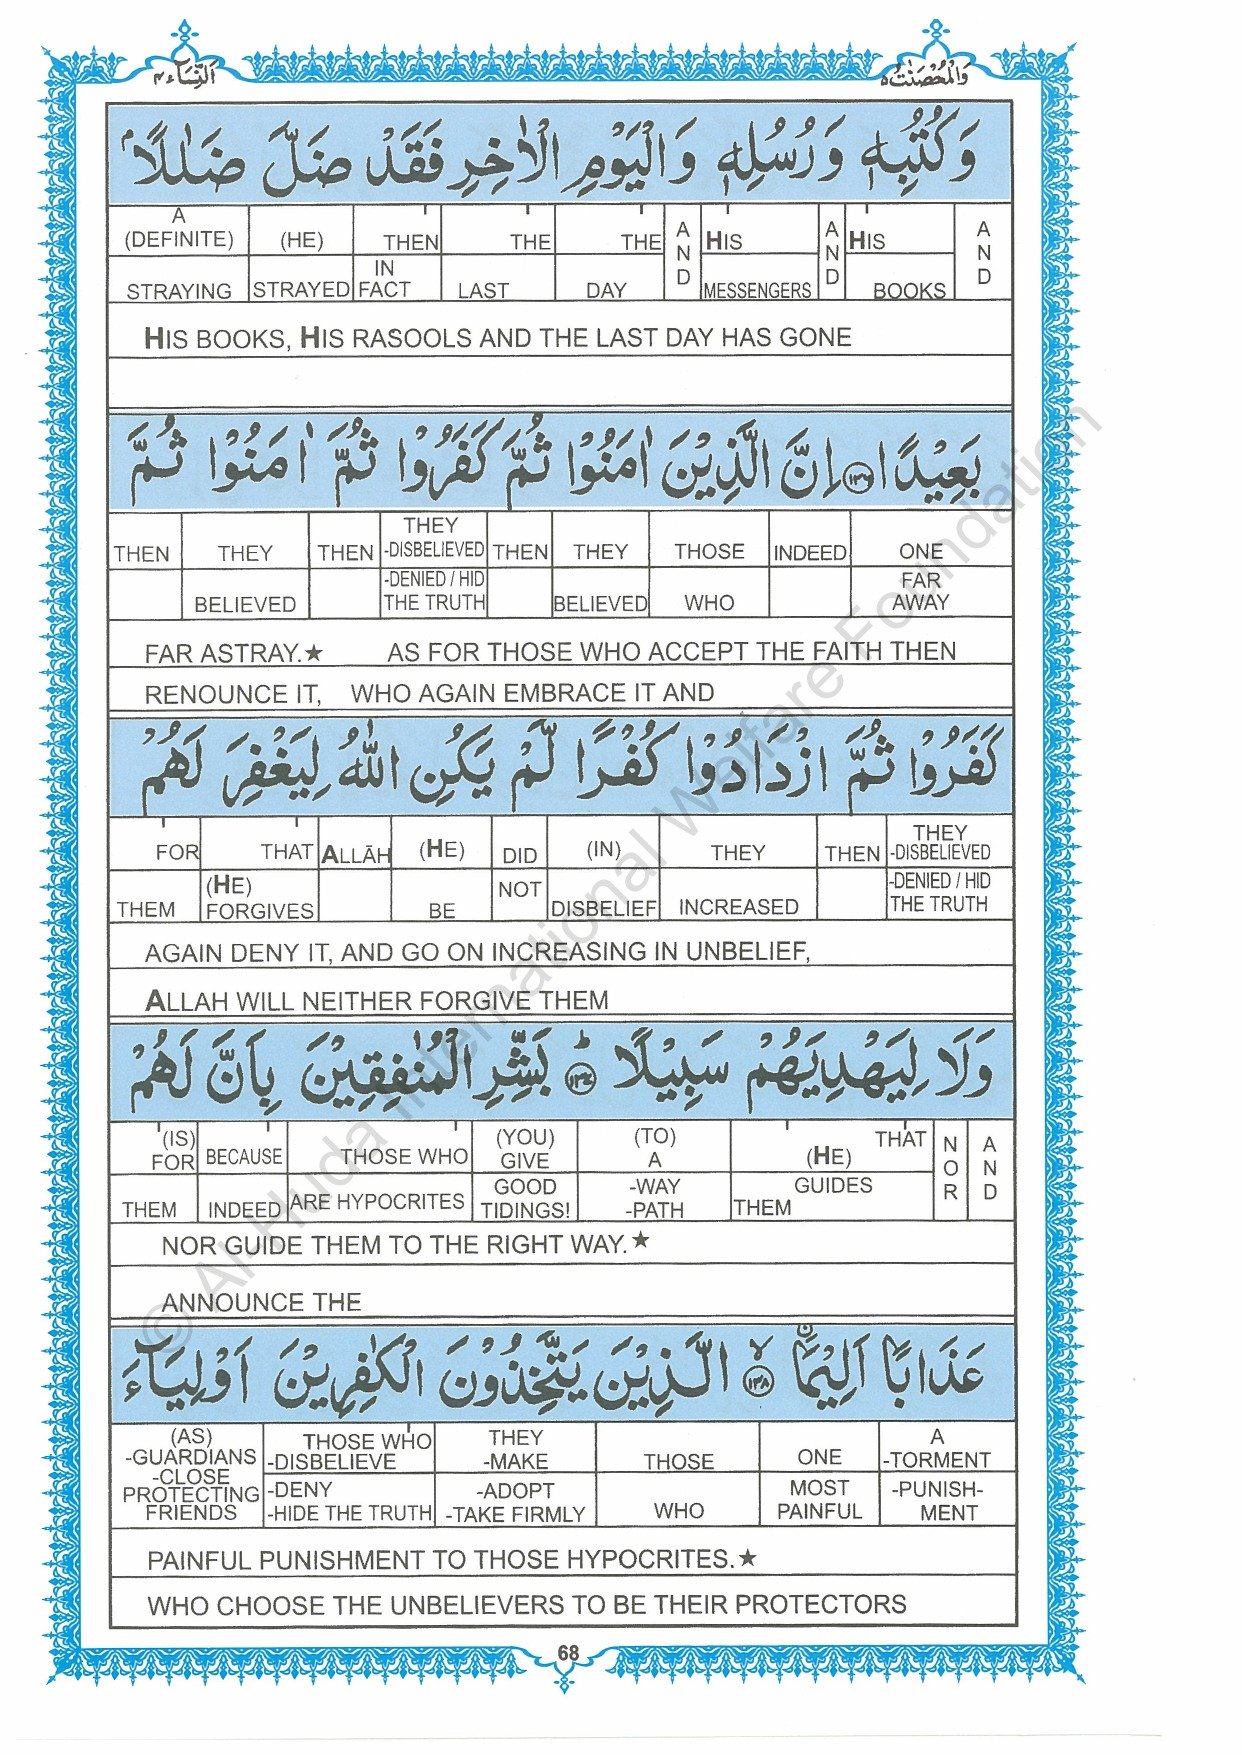 النِّسَآء ٤
وَالْمُحْصَنٰتُ ٥
وَكُتُبِهٖ وَرُسُلِهٖ وَالْيَوْمِ الْاٰخِرِ فَقَدْ ضَلَّ ضَلٰلًاۢ
A (DEFINITE) (HE) THEN THE THE AND HIS AND HIS AND
STRAYING STRAYED IN FACT LAST DAY MESSENGERS BOOKS
HIS BOOKS, HIS RASOOLS AND THE LAST DAY HAS GONE
بَعِيْدًا ۝١٣٦ اِنَّ الَّذِيْنَ اٰمَنُوْا ثُمَّ كَفَرُوْا ثُمَّ اٰمَنُوْا ثُمَّ
THEN THEY THEN THEY -DISBELIEVED THEN THEY THOSE INDEED ONE
BELIEVED -DENIED / HID THE TRUTH BELIEVED WHO FAR AWAY
FAR ASTRAY.★ AS FOR THOSE WHO ACCEPT THE FAITH THEN
RENOUNCE IT, WHO AGAIN EMBRACE IT AND
كَفَرُوْا ثُمَّ ازْدَادُوْا كُفْرًا لَّمْ يَكُنِ اللّٰهُ لِيَغْفِرَ لَهُمْ
FOR THAT ALLĀH (HE) DID (IN) THEY THEN THEY -DISBELIEVED
THEM (HE) FORGIVES BE NOT DISBELIEF INCREASED -DENIED / HID THE TRUTH
AGAIN DENY IT, AND GO ON INCREASING IN UNBELIEF,
ALLAH WILL NEITHER FORGIVE THEM
وَلَا لِيَهْدِيَهُمْ سَبِيْلًا ۝١٣٧ؕ بَشِّرِ الْمُنٰفِقِيْنَ بِاَنَّ لَهُمْ
(IS) FOR BECAUSE THOSE WHO (YOU) GIVE (TO) A (HE) THAT NOR AND
THEM INDEED ARE HYPOCRITES GOOD TIDINGS! -WAY -PATH THEM GUIDES
NOR GUIDE THEM TO THE RIGHT WAY.★
ANNOUNCE THE
عَذَابًا اَلِيْمَاۨ ۝١٣٨ۙ الَّذِيْنَ يَتَّخِذُوْنَ الْكٰفِرِيْنَ اَوْلِيَآءَ
(AS) -GUARDIANS THOSE WHO -DISBELIEVE THEY -MAKE THOSE ONE A -TORMENT
-CLOSE PROTECTING FRIENDS -DENY -HIDE THE TRUTH -ADOPT -TAKE FIRMLY WHO MOST PAINFUL -PUNISH-MENT
PAINFUL PUNISHMENT TO THOSE HYPOCRITES.★
WHO CHOOSE THE UNBELIEVERS TO BE THEIR PROTECTORS
68
© Al-Huda International Welfare Foundation